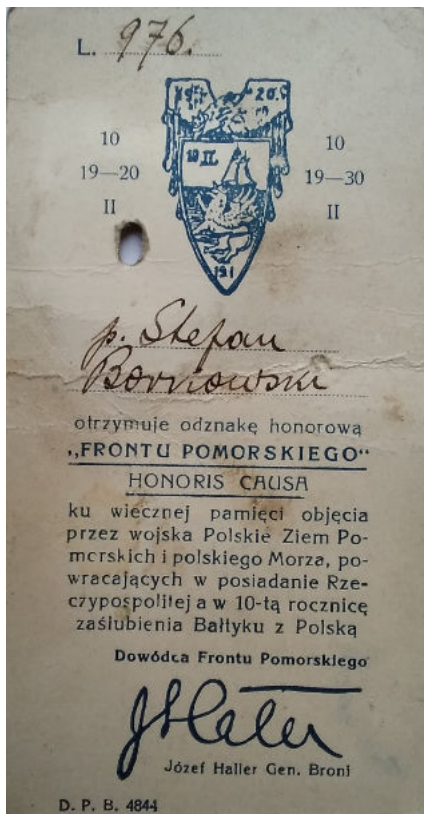 L. 976.
10
19—20
II
10
19—30
II
10 II.
p. Stefan
otrzymuje odznakę honorową
„FRONTU POMORSKIEGO“
HONORIS CAUSA
ku wiecznej pamięci objęcia
przez wojska Polskie Ziem Po-
morskich i polskiego Morza, po-
wracających w posiadanie Rze-
czypospolitej a w 10-tą rocznicę
zaślubienia Bałtyku z Polską
Dowódca Frontu Pomorskiego
JHaller
Józef Haller Gen. Broni
D. P. B. 4844